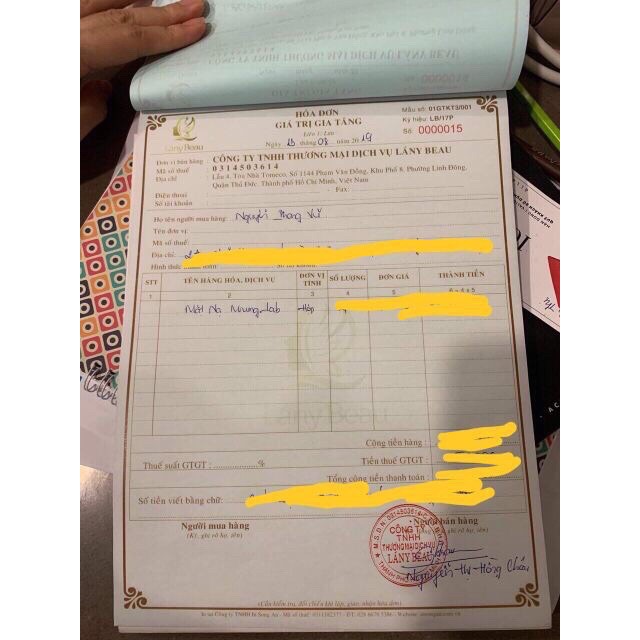 HÓA ĐƠN
GIÁ TRỊ GIA TĂNG
Liên 1: Lưu
Ngày 13 tháng 08 năm 2019
Mẫu số: 01GTKT3/001
Ký hiệu: LB/17P
Số: 0000015
Lány Beau
Đơn vị bán hàng: CÔNG TY TNHH THƯƠNG MẠI DỊCH VỤ LÁNY BEAU
Mã số thuế: 0314503614
Địa chỉ: Lầu 4, Tòa Nhà Toneeco, Số 1144 Phạm Văn Đồng, Khu Phố 8, Phường Linh Đông,
Quận Thủ Đức, Thành phố Hồ Chí Minh, Việt Nam
Điện thoại: Fax:
Số tài khoản:
Họ tên người mua hàng: Nguyễn Phong Vũ
Tên đơn vị:
Mã số thuế:
Địa chỉ:
Hình thức
STT TÊN HÀNG HÓA, DỊCH VỤ ĐƠN VỊ TÍNH SỐ LƯỢNG ĐƠN GIÁ THÀNH TIỀN
1 2 3 4 5 6 = 4 x 5
Mặt Nạ Nhung-Lab Hộp
Lány Beau
Cộng tiền hàng:
Thuế suất GTGT: % Tiền thuế GTGT:
Tổng cộng tiền thanh toán:
Số tiền viết bằng chữ:
Người mua hàng Người bán hàng
(Ký, ghi rõ họ, tên) 
M.S.D.N: 0314503614
CÔNG TY
TNHH
THƯƠNG MẠI DỊCH VỤ
LÁNY BEAU
Nguyễn Thị Hồng Châu
(Cần kiểm tra, đối chiếu khi lập, giao, nhận hóa đơn)